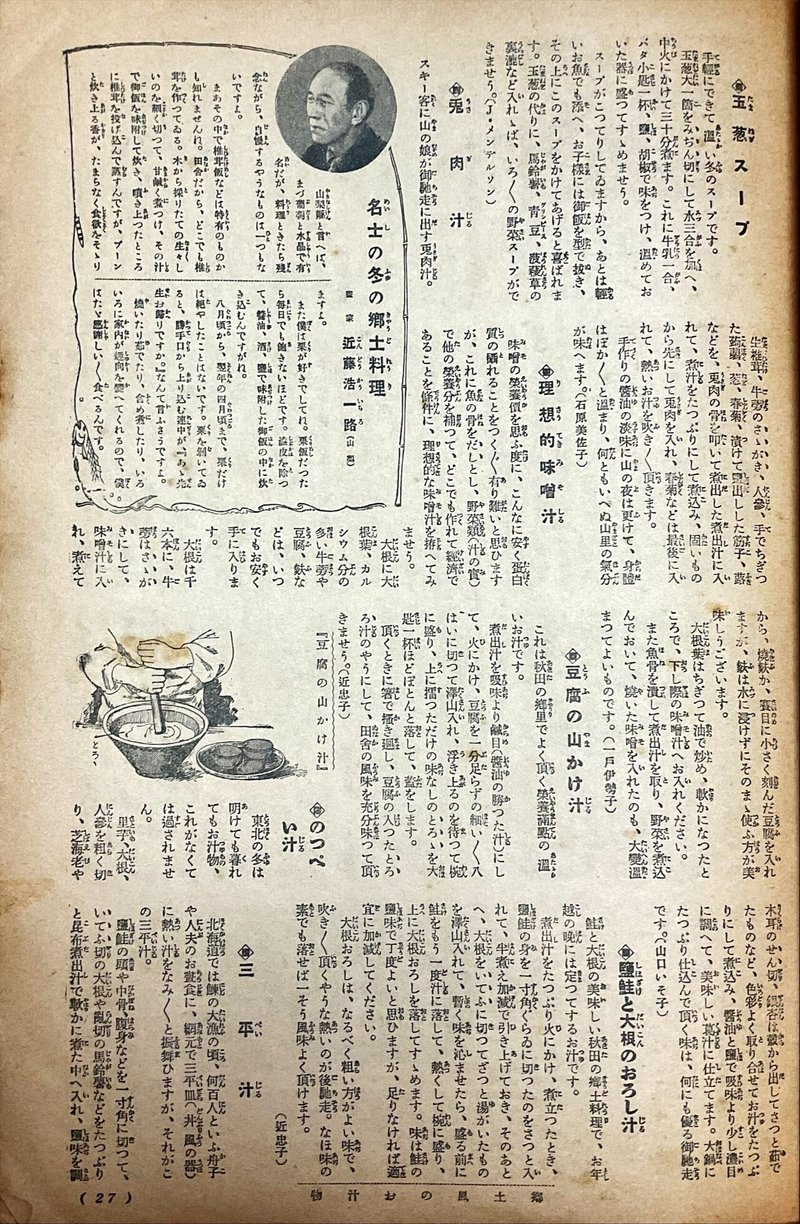 玉葱スープ
手輕にできて溫い冬のスープです。
玉葱大一箇をみぢん切にして水三合を加へ、
中火にかけて三十分煮ます。これに牛乳一合、
バタ小匙一杯、鹽、胡椒で味をつけ、溫めてお
いた器に盛つてすゝめませう。
スープがこつてりしてゐますから、あとは輕
いお魚でも添へ、お子樣には御飯を型で拔き、
その上にこのスープをかけてあげると喜ばれま
す。玉葱の代りに、馬鈴薯、靑豆、菠薐草の
裏漉など入れゝば、いろ〳〵の野菜スープがで
きませう。（J・メンデルソン）
兎肉汁
スキー客に山の娘が御馳走に出す兎肉汁。
生椎茸、牛蒡のさゝがき、人參、手でちぎつ
た蒟蒻、葱、春菊、漬けて鹽出しした筋子、蕗
などを、兎肉の骨を叩いて煮出した煮出汁に入
れて、煮汁をたつぷりにして煮込み、固いもの
から先にして兎肉を入れ、春菊などは最後に入
れて、熱いお汁を吹き〳〵頂きます。
手作りの醬油の淡味に山の夜は更けて、身體
はぽか〳〵と溫まり、何ともいへぬ山里の氣分
が味へます。（石原美佐子）
理想的味噌汁
味噌の榮養價を思ふ度に、こんなに安く蛋白
質の獲れることをつく〴〵有り難いと思ひます
が、これに魚の骨をだしとし、野菜類（汁の實）
で他の榮養分を補つて、どこでも作れて經濟で
あることを條件に、理想的な味噌汁を拵へてみ
ませう。
大根に大
根葉、カル
シウム分の
多い牛蒡や
豆腐、麩な
どは、いつ
でもお安く
手に入りま
す。
大根は千
六本に、牛
蒡はさゝが
きにして、
味噌汁に入
れ、煮えて
から、燒麩か、賽目に小さく刻んだ豆腐を入れ
ますが、麩は水に浸けずにそのまゝ使ふ方が美
味しうございます。
大根葉はちぎつて油で炒め、軟かになつたと
ころで、下し際の味噌汁へお入れください。
また魚骨を潰して煮出汁を取り、野菜を煮込
んでおいて、燒いた味噌を入れたのも、大變溫
まつてよいものです。（一戶伊勢子）
豆腐の山かけ汁
これは秋田の鄕里でよく頂く榮養滿點の溫
いお汁です。
煮出汁を吸味より鹹目（醬油の勝つた汁）にし
て、火にかけ、豆腐を一分足らずの細い〳〵八
はいに切つて澤山入れ、浮き上るのを待つて椀
に盛り、上に擂つただけの味なしのとろゝを大
匙一杯ほどぽとんと落して、蓋をします。
頂くときに箸で搔き廻し、豆腐の入つたとろ
ろ汁のやうにして、田舍の風味を充分味つて頂
きませう。（近忠子）
『豆腐の山かけ汁』
とろゝ
のつぺい汁
東北の冬は
明けても暮れ
てもお汁物、
これがなくて
は過されませ
ん。
里芋、大根、
人參を粗く切
り、芝海老や
木耳のせん切、銀杏は殼から出してさつと茹で
たものなど、色彩よく取り合せてお汁をたつぷ
りにして煮込み、醬油と鹽で吸味より少し濃目
に調へて、美味しい葛汁に仕立てます。大鍋に
たつぷり仕込んで頂く味は、何にも優る御馳走
です。（山口いそ子）
鹽鮭と大根のおろし汁
鮭と大根の美味しい秋田の鄕土料理で、お年
越の晩には定つてするお汁です。
煮出汁をたつぷり火にかけ、煮立つたとき、
鹽鮭の身を一寸角ぐらゐに切つたのをさつと入
れて、半煮え加減で引き上げておき、そのあと
へ、大根をいてふに切つてざつと湯がいたもの
を澤山入れて、暫く味を沁ませたら、盛る前に
鮭をもう一度汁に落して、熱くして椀に盛り、
上に大根おろしを落してすゝめます。味は鮭の
鹽味で丁度よいと思ひますが、足りなければ適
宜に加減してください。
大根おろしは、なるべく粗い方がよい味で、
吹き〳〵頂くやうな熱いのが後馳走。なほ味の
素でも落せば一そう風味よく頂けます。
（近忠子）
三平汁
北海道では鰊の大漁の頃、何百人といふ舟子
や人夫のお晝食に、網元で三平皿（丼風の器）
に熱い汁をなみ〳〵と振舞ひますが、それがこ
の三平汁。
鹽鮭の頭や中骨、腹身などを一寸角に切つて、
いてふ切の大根や亂切の馬鈴薯などをたつぷり
と昆布煮出汁で軟かに煮た中へ入れ、鹽味を調
名士の冬の鄕土料理
畫家 近藤浩一路（山梨）
山梨縣と言へば、
まづ葡萄と水晶で有
名だが、料理ときたら殘
念ながら、自慢するやうなものは一つもな
いですよ。
まあその中で椎茸飯などは特有のものか
も知れませんね。田舍だから、どこでも椎
茸を作つてゐる。木から採りたての生々し
いのを細く切つて、甘鹹く煮つけ、その汁
で御飯を味附して炊き、噴き上つたところ
に椎茸を投げ込んで蒸すんですが、プーン
と炊き上る香が、たまらなく食欲をそゝり
ますよ。
また僕は栗が好きでしてね。栗飯だつた
ら每日でも飽きないほどです。澁皮を除つ
て、醬油、酒、鹽で味附した御飯の中に炊
き込むんですがね。
八月頃から、翌年の四月頃まで、栗だけ
は絕やしたことはないです。栗を剝いてゐ
ると、勝手口から入り込む連中が『あ、先
生お歸りですか。』なんて言ふさうですよ。
燒いたり茹でたり、含め煮にしたり、いろ
いろに家內が趣向を變へてくれるので、僕
はたゞ感謝しい〳〵食べるんです。
鄕土風のお汁物
（27）